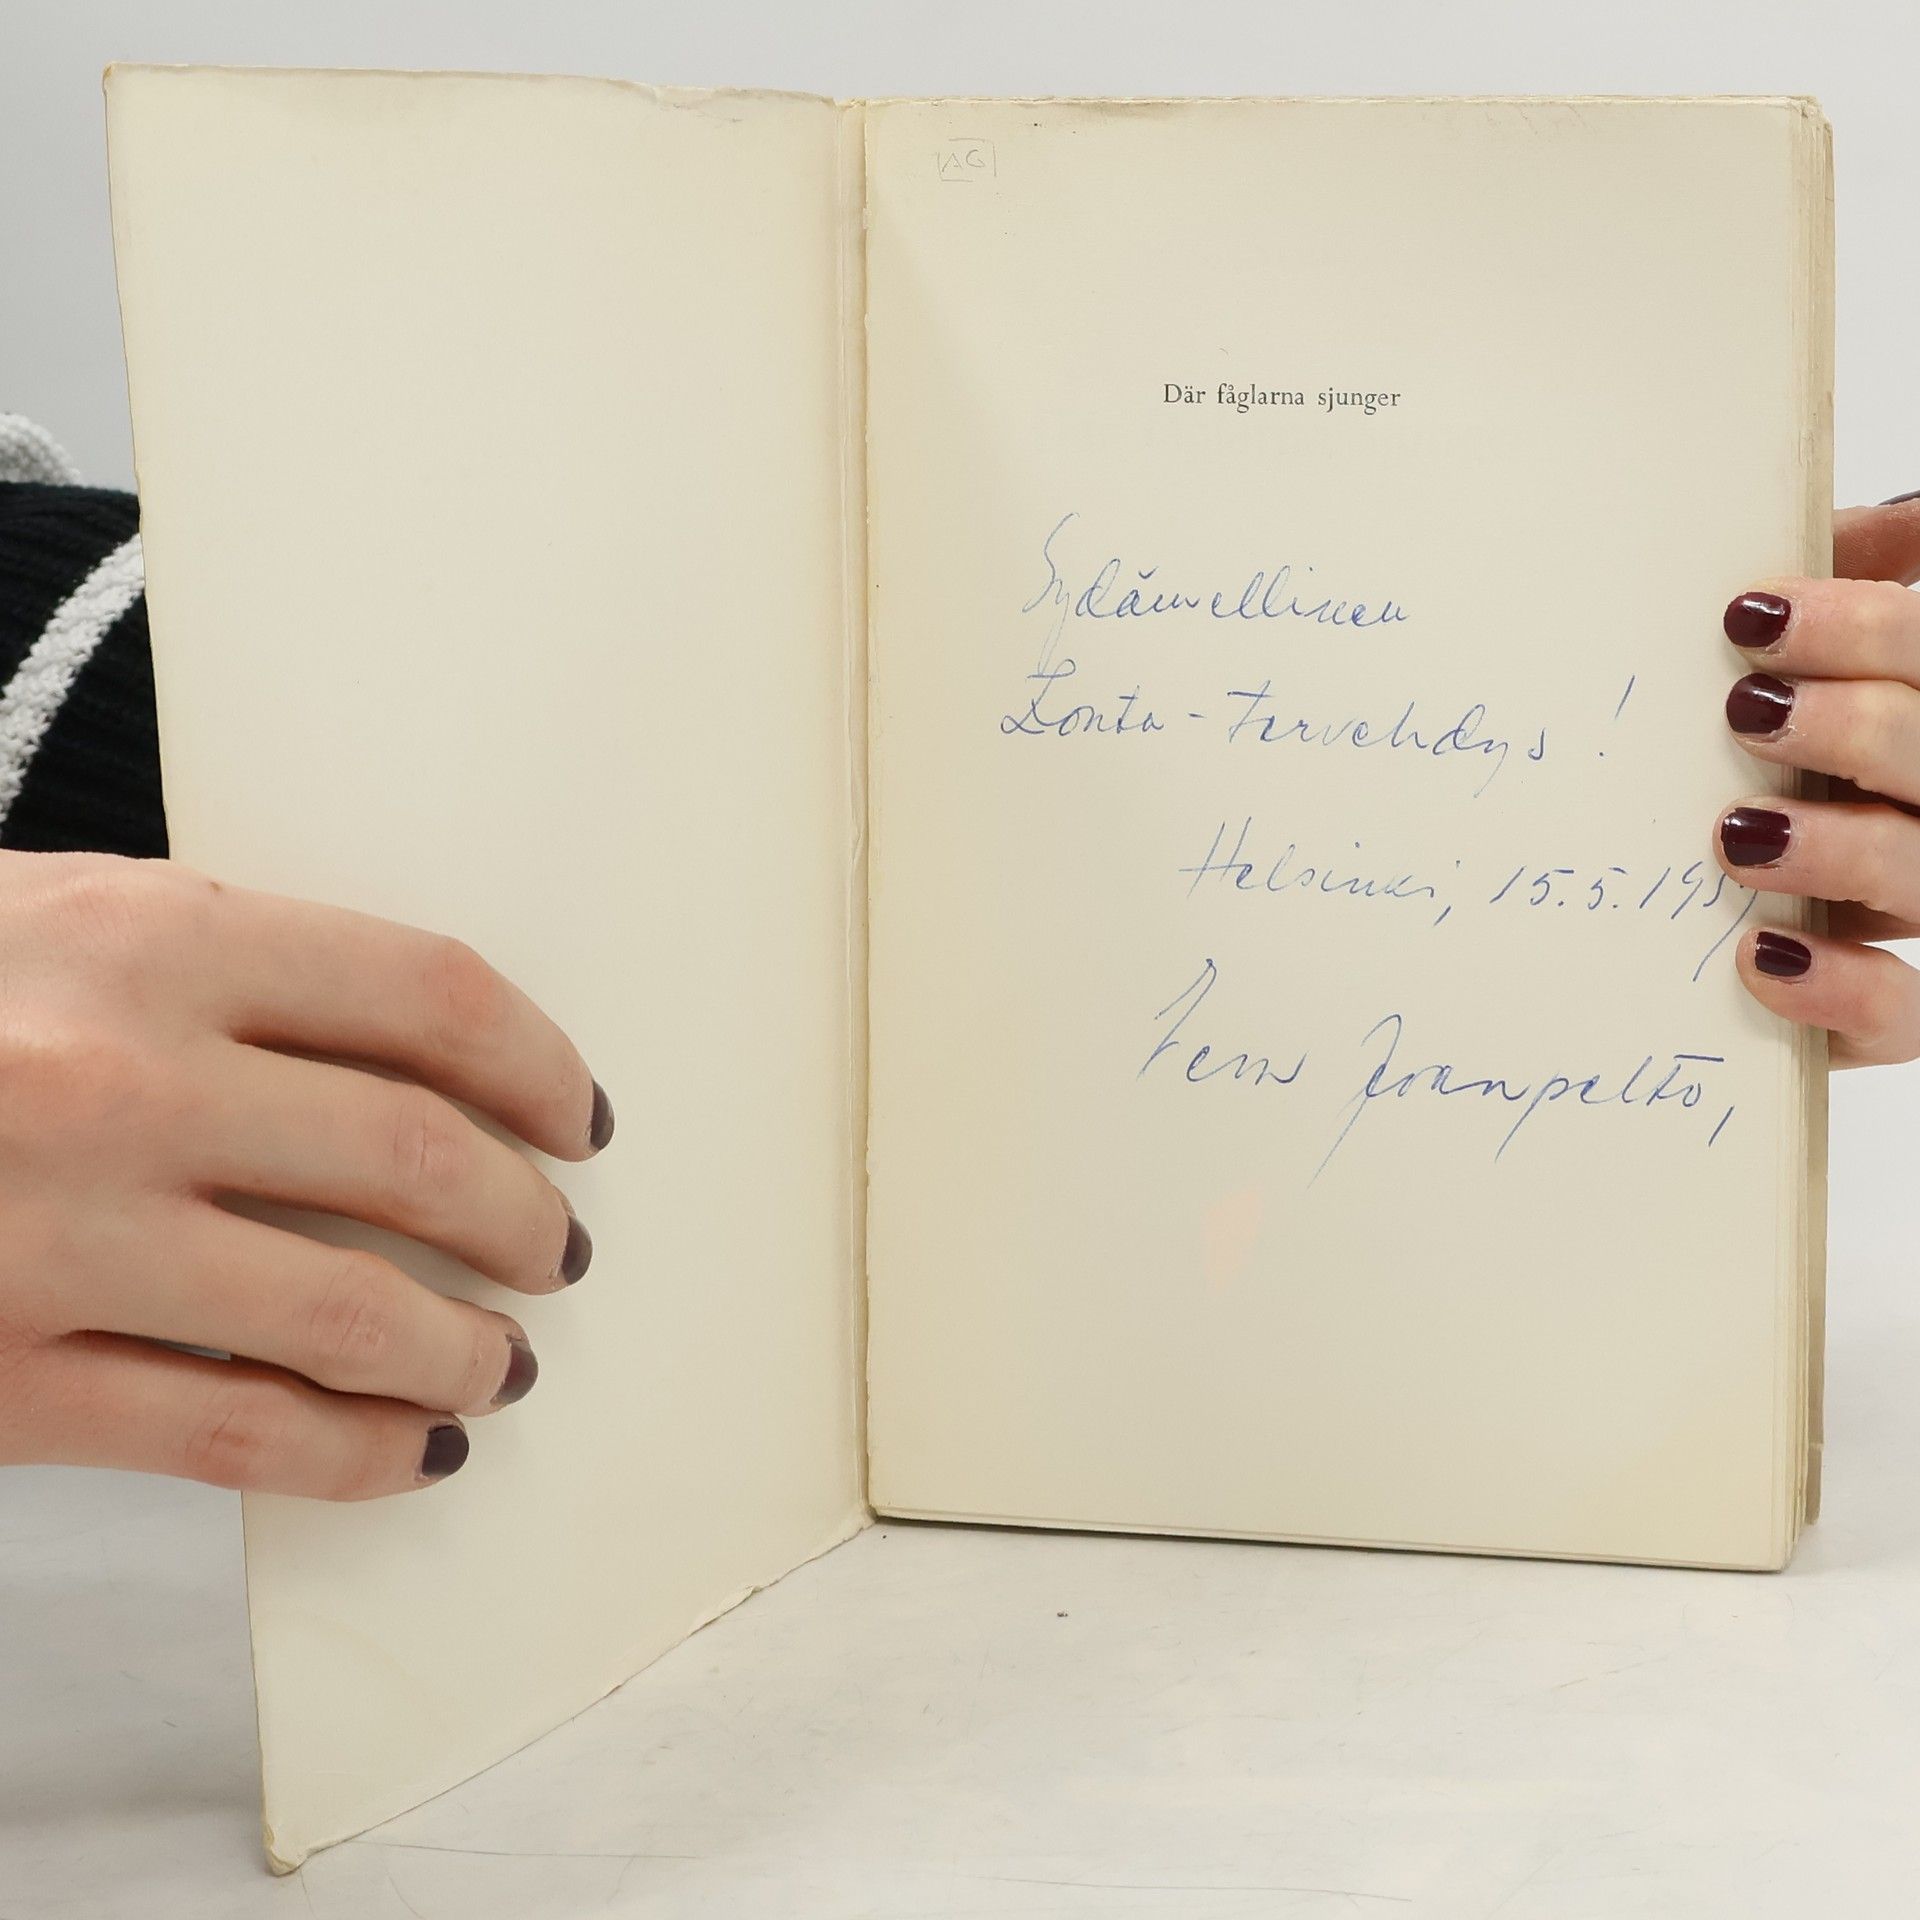 AG
Där fåglarna sjunger
Sydämellinen
Zonta-tervehdys!
Helsinki, 15.5.1957
Eeva Joenpelto,